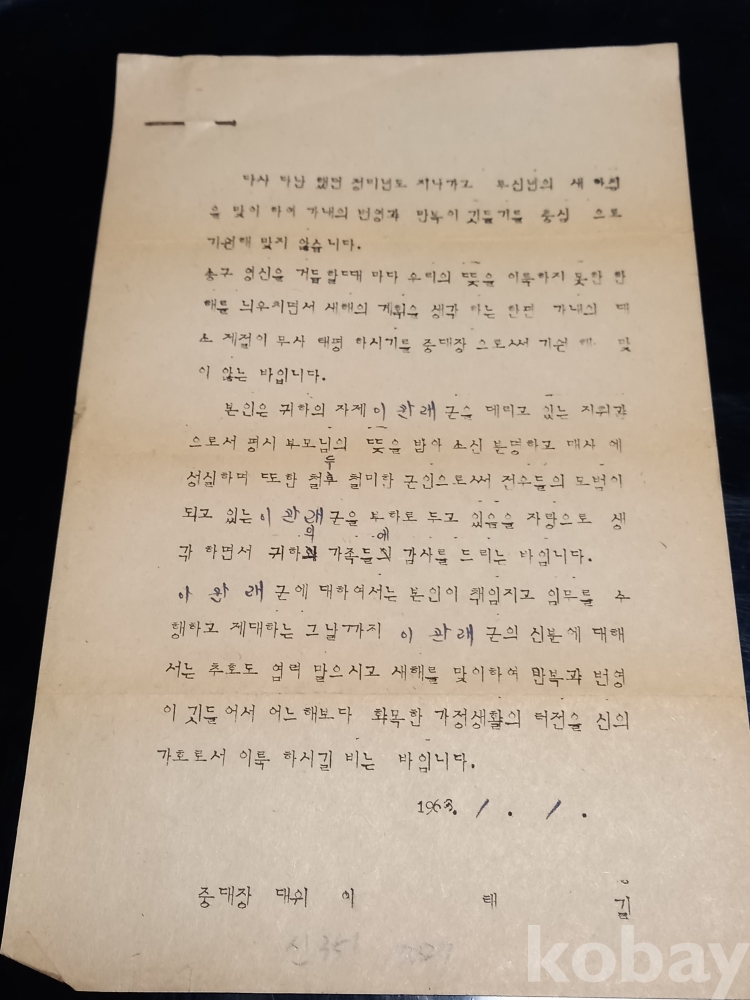 다사 다난 했던 정미년도 지나가고 무신년의 새 아침
을 맞이 하여 가내의 번영과 만복이 깃들기를 충심 으로
기원해 맞지 않습니다.
송구 영신을 거듭할때 마다 우리의 뜻을 이룩하지 못한 한
해를 늬우치면서 새해의 계획을 생각 하는 한편 가내의 대
소 제절이 무사 태평 하시기를 중대장 으로써 기원 해 맞
이 않는 바입니다.
본인은 귀하의 자제 이 관래 군을 데리고 있는 지휘관
으로서 평시 부모님의 뜻을 받아 소신 분명하고 매사 에
성실하며 또한 철두 철미한 군인으로써 전우들의 모범이
되고 있는 이 관래 군을 부하로 두고 있음을 자랑으로 생
각 하면서 귀하의 가족들에 감사를 드리는 바입니다.
이 관 래 군에 대하여서는 본인이 책임지고 임무를 수
행하고 제대하는 그날까지 이 관래 군의 신분에 대해
서는 추호도 염려 말으시고 새해를 맞이하여 만복과 번영
이 깃들 어서 어느 해보다 화목한 가정생활의 터전을 신의
가호로서 이룩 하시길 비는 바입니다.
1968. 1. 1.
중대장 대위 이 태 길
신351
kobay